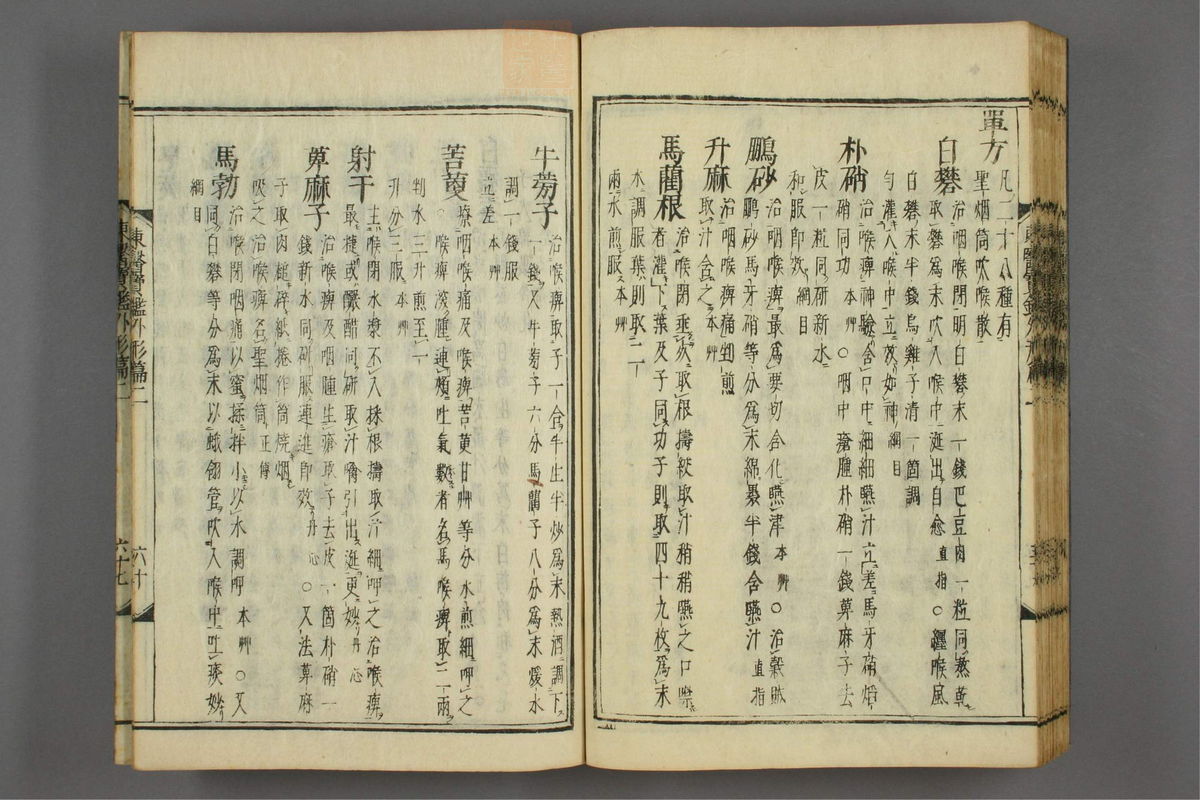 單方 凡二十八種有
聖烟筒吹喉散
白礬 治咽喉閉明白礬末一錢巴豆肉一粒同熬乾
取礬爲末吹入喉中涎出自愈 直指 ○纏喉風
白礬末半錢烏雞子清一箇調
勻灌入喉中立效如神 綱目
朴硝 治喉痺神驗含口中細細嚥汁立差馬牙硝焰
硝同功 本艸 ○咽中瘡腫朴硝一錢萆麻子去
皮一粒同研新水
和服即效 綱目
鵬砂 治咽喉痺最爲要切含化嚥津 本艸 ○治穀賊
鵬砂馬牙硝等分爲末綿裹半錢含嚥汁 直指
升麻 治咽喉痺痛剉煎
取汁含之 本艸
馬藺根 治喉閉垂死取根擣絞取汁稍稍嚥之口噤
者灌下葉及子同功子則取四十九枚爲末
水調服葉則取二
兩水煎服 本艸
牛蒡子 治喉痺取子一合半生半炒爲末熱酒調下
一錢又牛蒡子六分馬藺子八分爲末煖水
調一錢服
立差 本艸
苦䓈 療咽喉痛及喉痺苦䓈甘艸等分水煎細呷之
喉痺滾腫連頰吐氣數者名馬喉痺取二兩
剉水三升煎至一
升分三服 本艸
射干 主喉閉水漿不入採根擣取汁細呷之治喉痺
最捷或醲醋同研取汁噙引出涎更妙 丹心
萆麻子 治喉痺及咽腫生瘡取子去皮一箇朴硝一
錢新水同研服連進即效 丹心 ○又法萆麻
子取肉搥碎紙捲作筒燒烟
吸之治喉痺名聖烟筒 正傳
馬勃 治喉閉咽痛以蜜揉拌小以水調呷 本艸 ○又
同白礬等分爲末以鵞翎管吹入喉中吐痰妙
綱目
東醫寶鑑外形篇二 六十